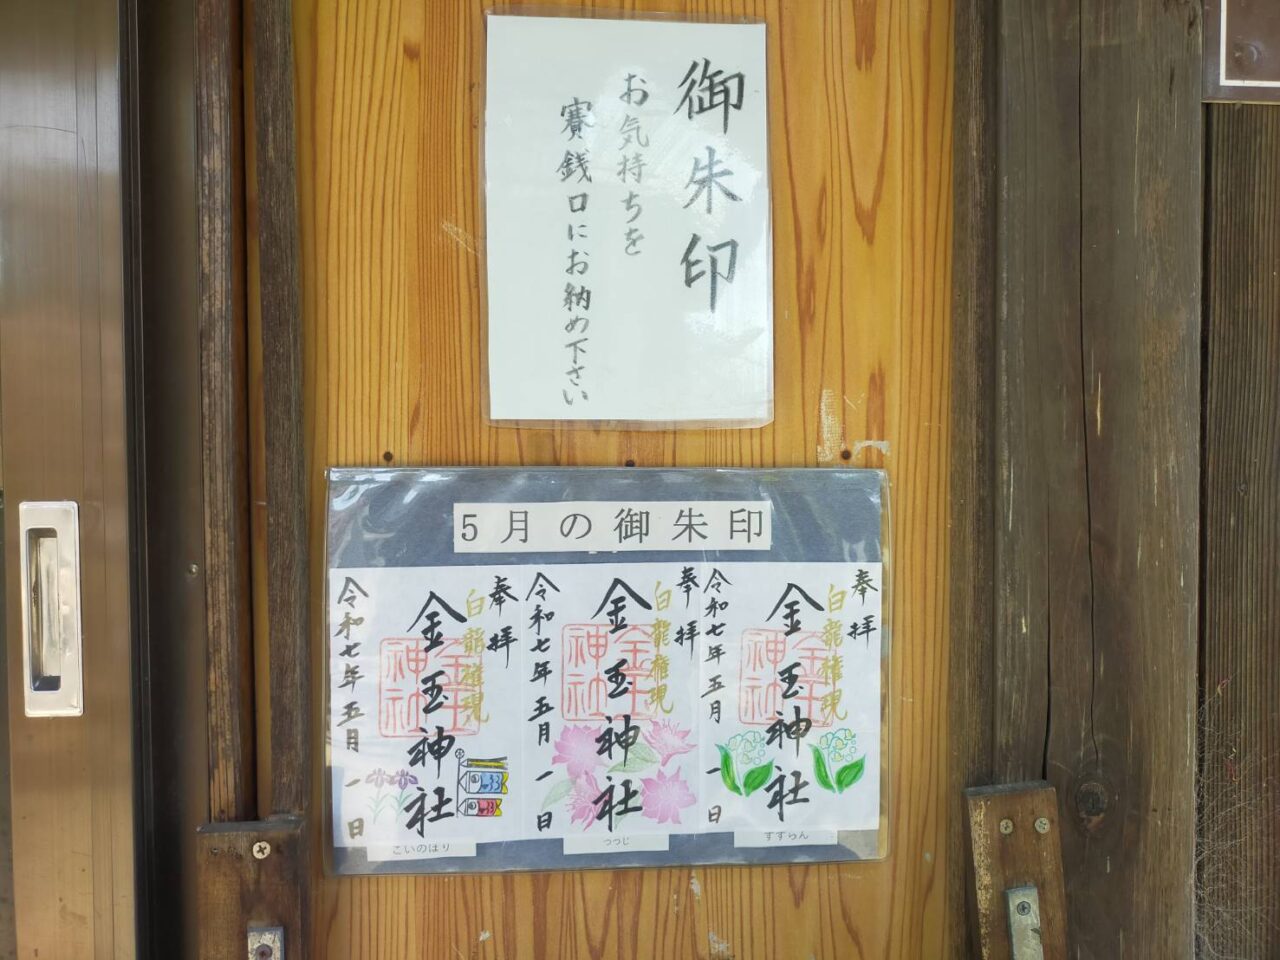 御朱印
お気持ちを
賽銭口にお納め下さい
5月の御朱印
奉拝
白龍権現
金玉神社
金玉神社
令和七年五月一日
すずらん
奉拝
白龍権現
金玉神社
金玉神社
令和七年五月一日
つつじ
奉拝
白龍権現
金玉神社
金玉神社
令和七年五月一日
こいのぼり